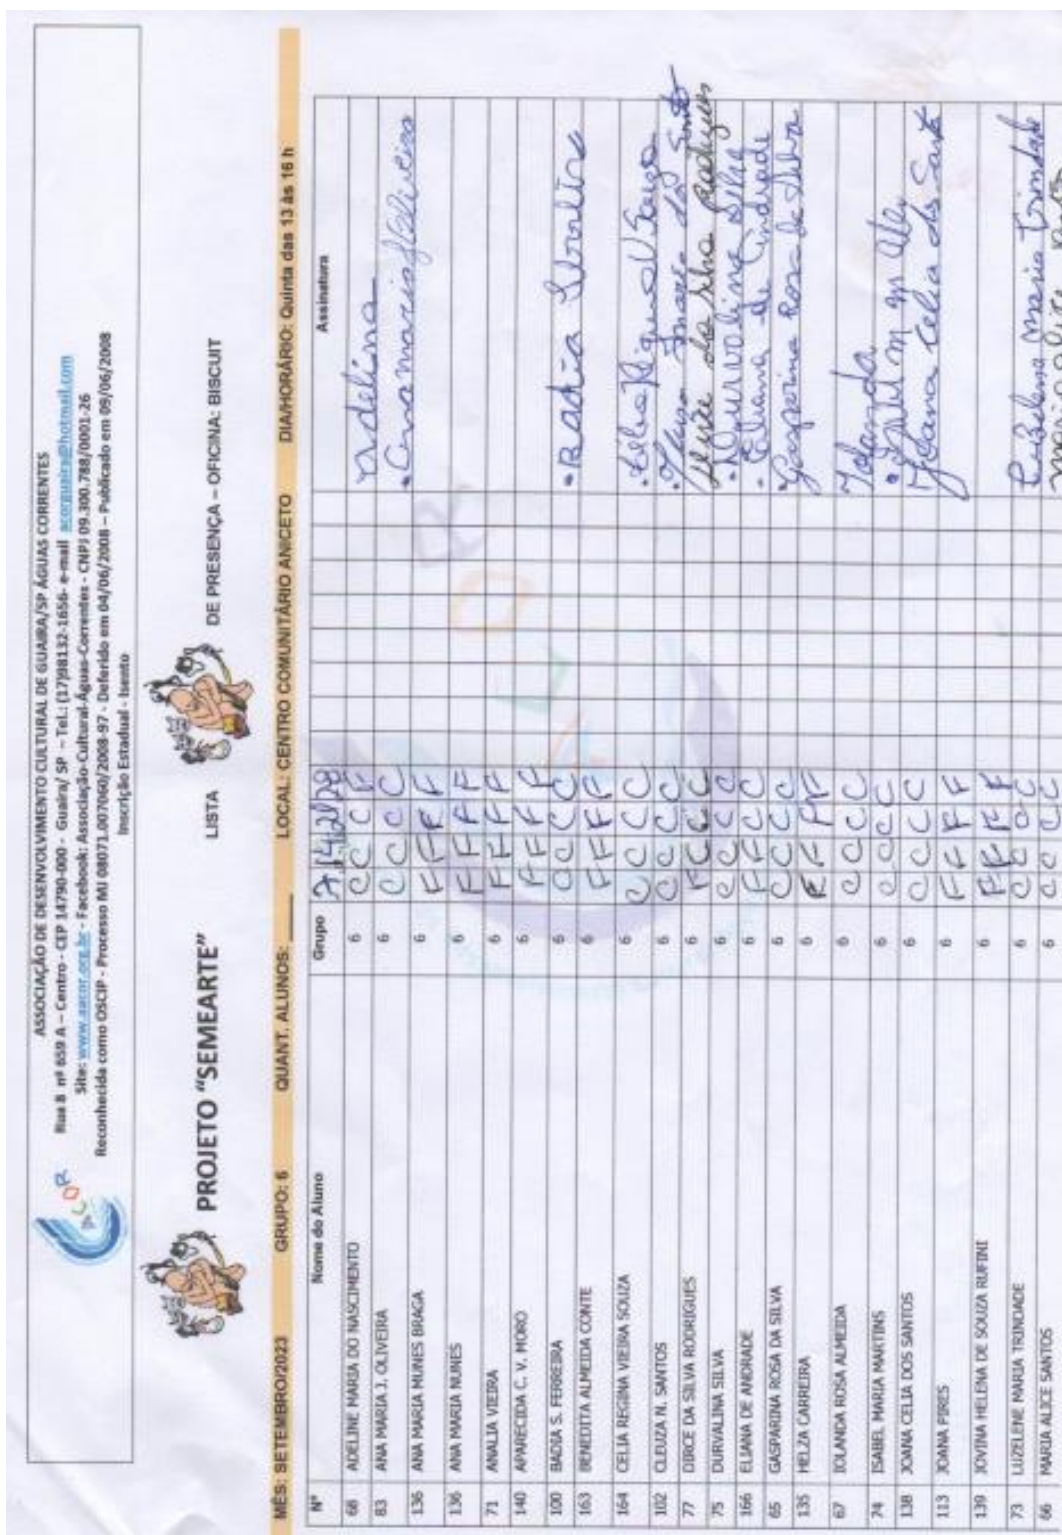 ASSOCIAÇÃO DE DESENVOLVIMENTO CULTURAL DE GUAIRA/SP ÁGUAS CORRENTES
Rua 8 nº 659 A – Centro - CEP 14790-000 - Guaira/ SP – Tel.: (17)98132-1656- e-mail acorguaira@hotmail.com
Site: www.aacor.org.br - Facebook: Associação-Cultural-Águas-Correntes - CNPJ 09.300.788/0001-26
Reconhecida como OSCIP - Processo MJ 08071.007060/2008-97 - Deferido em 04/06/2008 – Publicado em 09/06/2008
Inscrição Estadual - Isento
ACOR
PROJETO "SEMEARTE" LISTA DE PRESENÇA – OFICINA: BISCUIT
MÊS: SETEMBRO/2023 GRUPO: 6 QUANT. ALUNOS: ____ LOCAL: CENTRO COMUNITÁRIO ANICETO DIA/HORÁRIO: Quinta das 13 às 16 h
Nº Nome do Aluno Grupo 7 14 21 28 Assinatura
68 ADELINE MARIA DO NASCIMENTO 6 C C C F Adelina
83 ANA MARIA J. OLIVEIRA 6 C C C C Ana maria J Oliveira
136 ANA MARIA MUNES BRAGA 6 F F F F
136 ANA MARIA NUNES 6 F F F F
71 ANALIA VIEIRA 6 F F F F
140 APARECIDA C. V. MORO 6 F F F F
100 BADIA S. FERREIRA 6 C C C C Badia
163 BENEDITA ALMEIDA CONTE 6 F F F F
164 CELIA REGINA VIEIRA SOUZA 6 C C C C Célia
102 CLEUZA N. SANTOS 6 C C C C
77 DIRCE DA SILVA RODRIGUES 6 F C C C da Silva Rodrigues
75 DURVALINA SILVA 6 C C C C Durvalina Silva
166 ELIANA DE ANDRADE 6 F F C C Eliana de Andrade
65 GASPARINA ROSA DA SILVA 6 C C C C Gasparina Rosa da Silva
135 HELZA CARREIRA 6 F F F F
67 IOLANDA ROSA ALMEIDA 6 C C C C Iolanda
74 ISABEL MARIA MARTINS 6 C C C C
138 JOANA CELIA DOS SANTOS 6 C C C C Joana Celia dos Santos
113 JOANA PIRES 6 F F F F
139 JOVINA HELENA DE SOUZA RUFINI 6 F F F F
73 LUZELENE MARIA TRINDADE 6 C C C C maria Trindade
66 MARIA ALICE SANTOS 6 C C C C maria alice